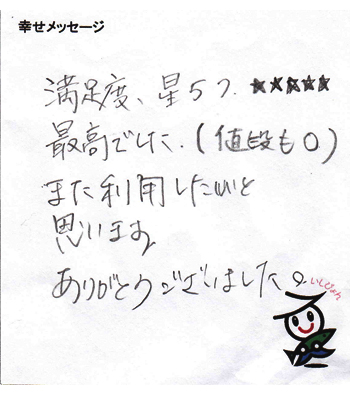 幸せメッセージ
満足度、星5つ.★★★★★
最高でした.(値段も○)
また利用したいと
思います
ありがとうございました。